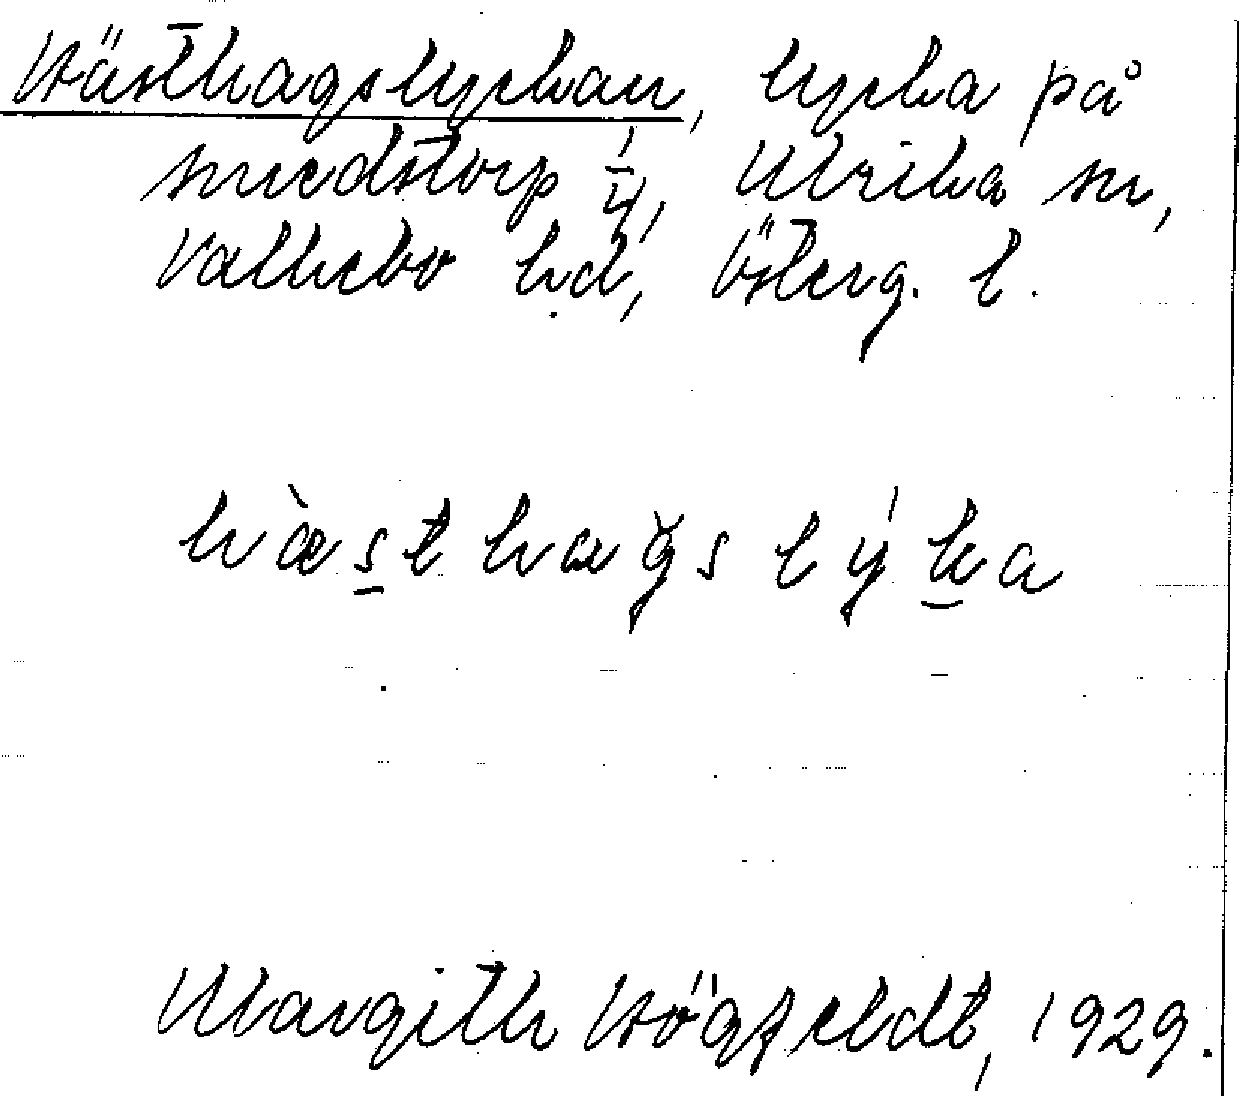 Hästhagslyckan, lycka på
Smedstorp 1/4, Ulrika sn,
Valkebo hd, Österg. l.
hæ̀s̲thaǧslýk̲a
Margith Högfeldt, 1929.